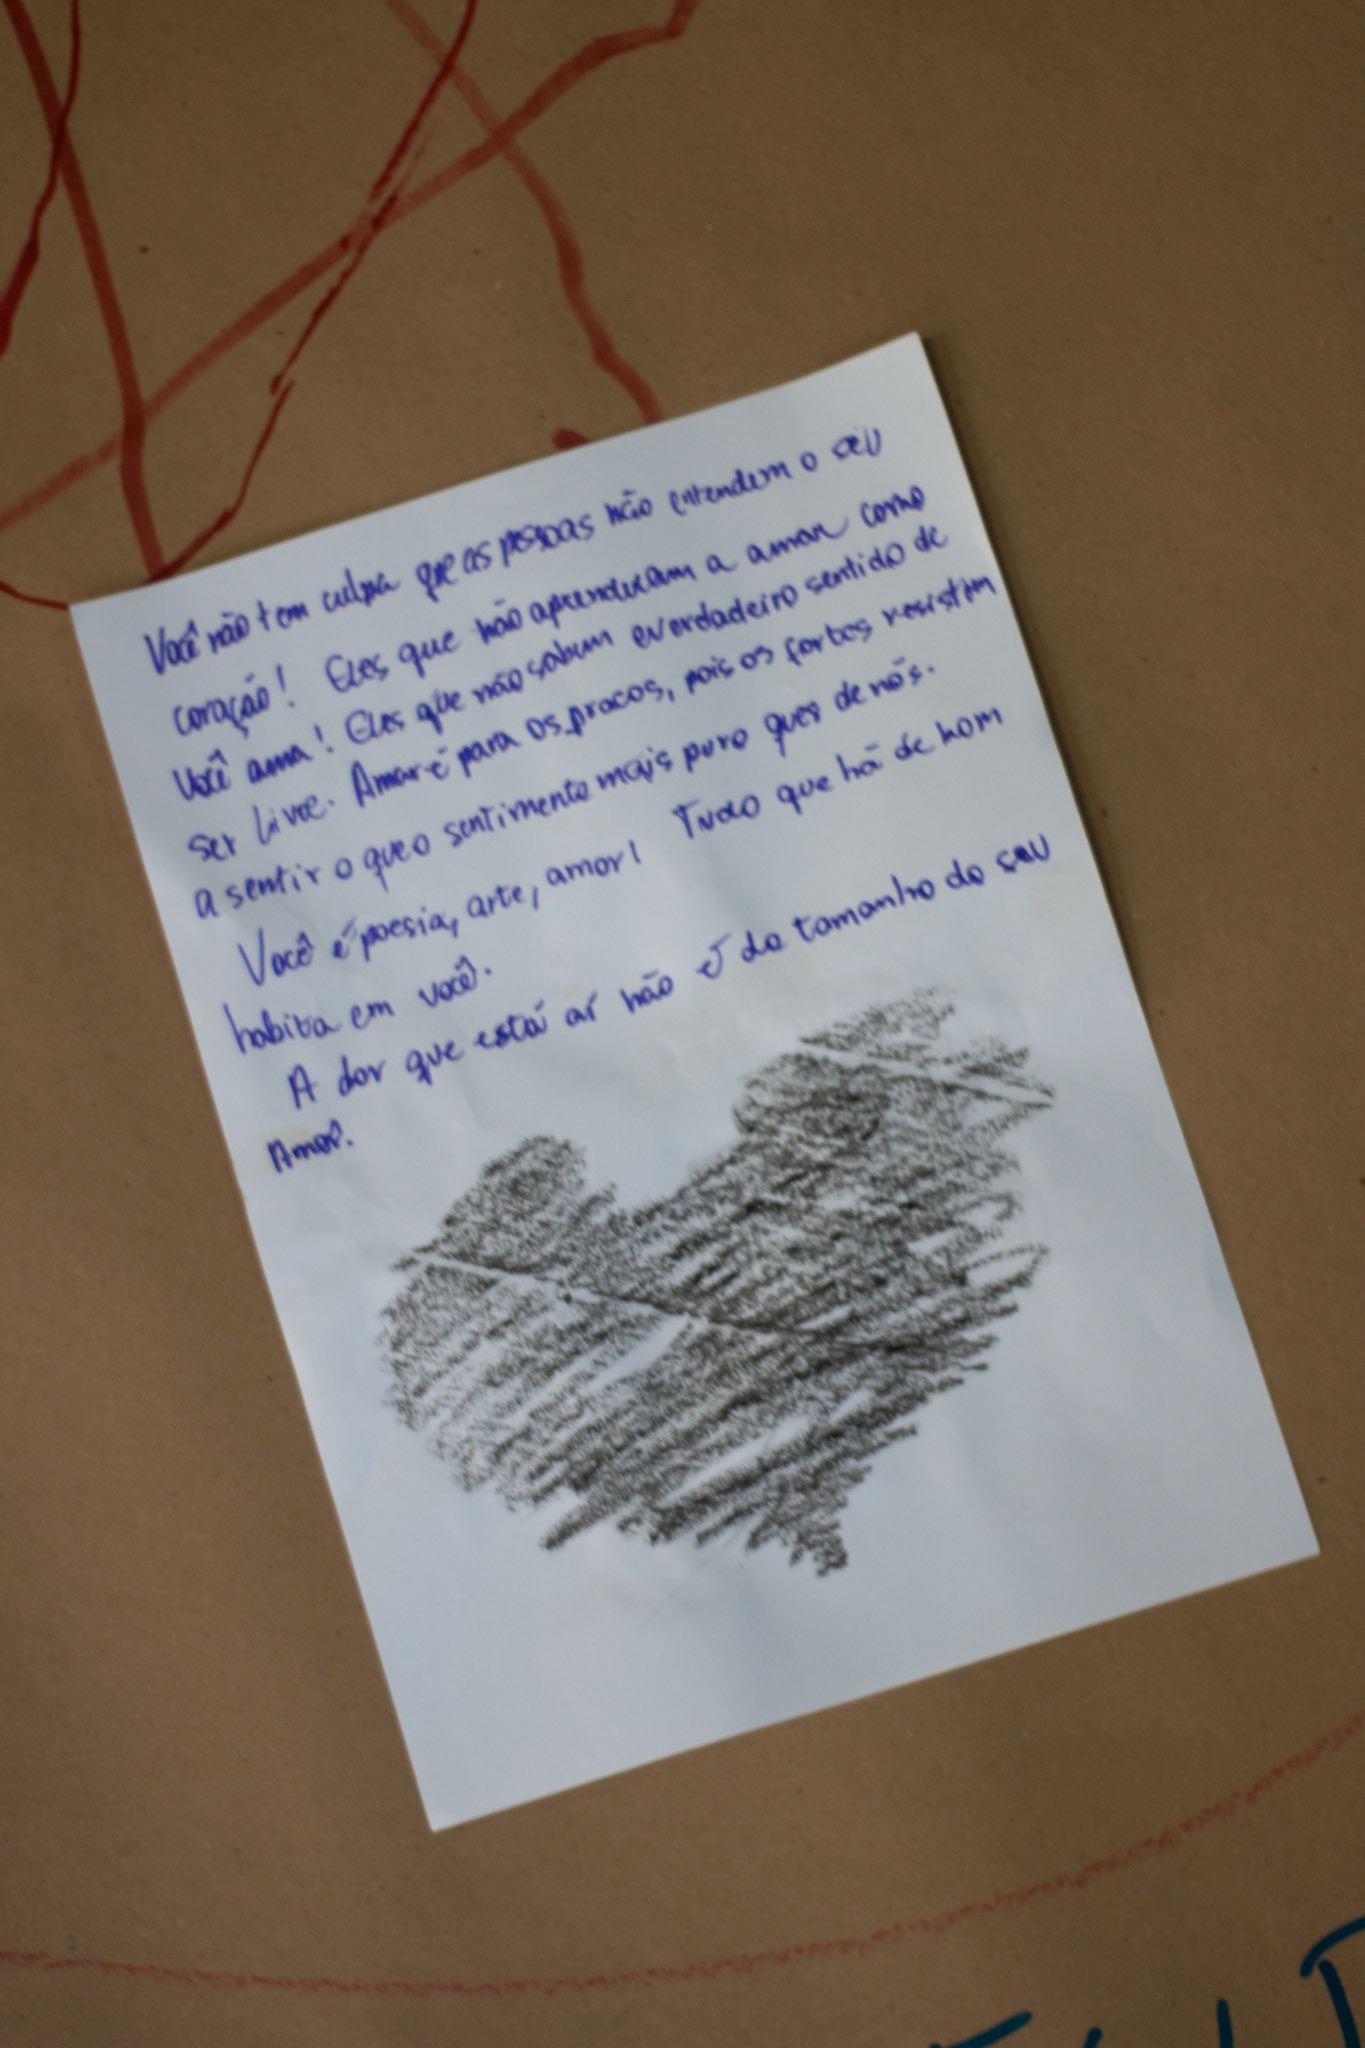 Você não tem culpa que as pessoas não entendem o seu
coração! Eles que não aprenderam a amar como
você ama! Eles que não sabem o verdadeiro sentido de
ser livre. Amar é para os fracos, pois os fortes resistem
a sentir o que o sentimento mais puro quer de nós.
Você é poesia, arte, amor! Tudo que há de bom
habita em você.
A dor que está aí não é do tamanho do seu
Amor.